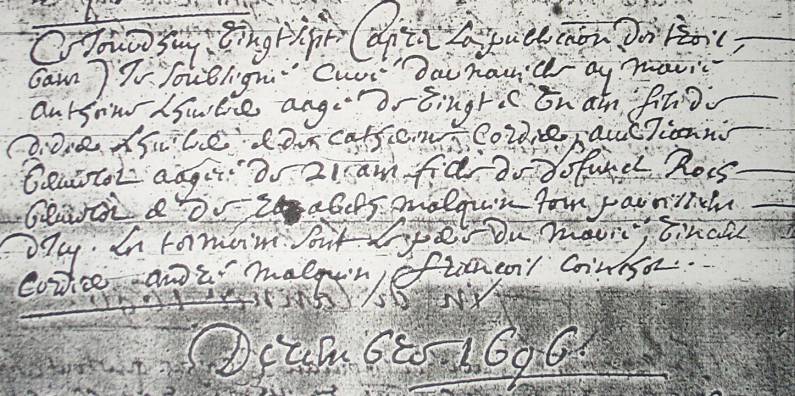 Ce Jourdhuy vingt sept (apres la publicaon des trois
bans) Je soubsigné Curé daunauille ay marié
anthoine Lhuilie aagé de vingt et vn an fils de
didie Lhuilie et de catherine Cordie, auec Jeanne
aagée de 21 an fille de defunct
et de Elisabeth malquin tous parroissiens
dIcy. Les tesmoins sont Le pere du marié, vincent
Cordie andré malquin, françois
Decembre 1696.